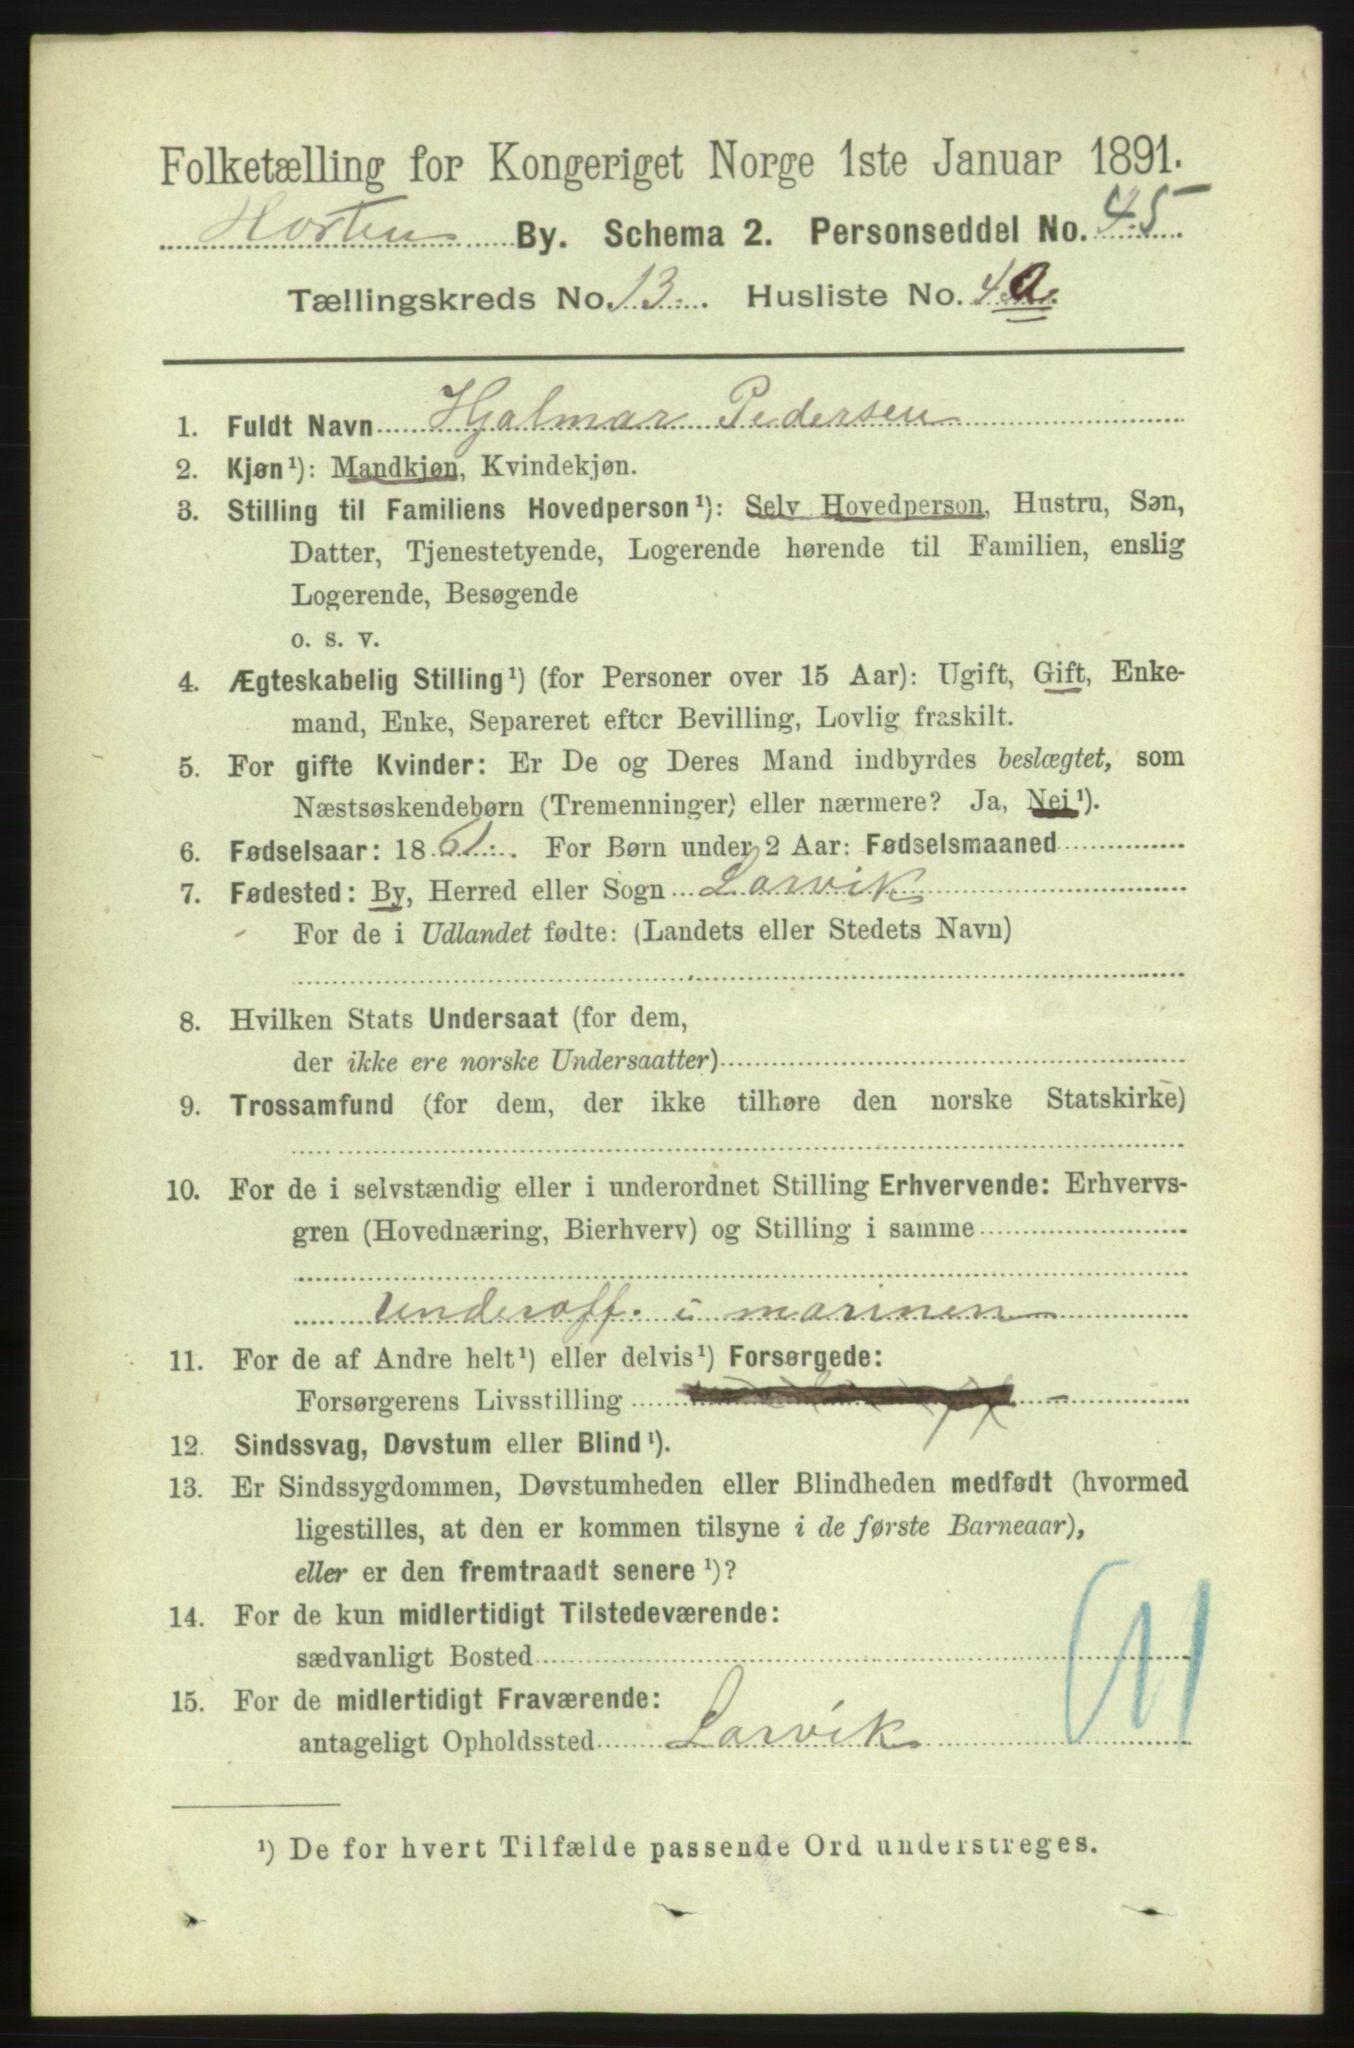 Folketælling for Kongeriget Norge 1ste Januar 1891.
Horten By. Schema 2. Personseddel No. 45
Tællingskreds No. 13. Husliste No. 4a.
1. Fuldt Navn Hjalmar Pedersen
2. Kjøn¹): Mandkjøn, Kvindekjøn.
3. Stilling til Familiens Hovedperson¹): Selv Hovedperson, Hustru, Søn,
Datter, Tjenestetyende, Logerende hørende til Familien, enslig
Logerende, Besøgende
o. s. v.
4. Ægteskabelig Stilling¹) (for Personer over 15 Aar): Ugift, Gift, Enke-
mand, Enke, Separeret efter Bevilling, Lovlig fraskilt.
5. For gifte Kvinder: Er De og Deres Mand indbyrdes beslægtet, som
Næstsøskendebørn (Tremenninger) eller nærmere? Ja, Nei¹).
6. Fødselsaar: 1861. For Børn under 2 Aar: Fødselsmaaned
7. Fødested: By, Herred eller Sogn Larvik
For de i Udlandet fødte: (Landets eller Stedets Navn)
8. Hvilken Stats Undersaat (for dem,
der ikke ere norske Undersaatter)
9. Trossamfund (for dem, der ikke tilhøre den norske Statskirke)
10. For de i selvstændig eller i underordnet Stilling Erhvervende: Erhvervs-
gren (Hovednæring, Bierhverv) og Stilling i samme
Underoff. i marinen
11. For de af Andre helt¹) eller delvis¹) Forsørgede:
Forsørgerens Livsstilling
12. Sindssvag, Døvstum eller Blind¹).
13. Er Sindssygdommen, Døvstumheden eller Blindheden medfødt (hvormed
ligestilles, at den er kommen tilsyne i de første Barneaar),
eller er den fremtraadt senere¹)?
14. For de kun midlertidigt Tilstedeværende:
sædvanligt Bosted
15. For de midlertidigt Fraværende:
antageligt Opholdssted Larvik
¹) De for hvert Tilfælde passende Ord understreges.